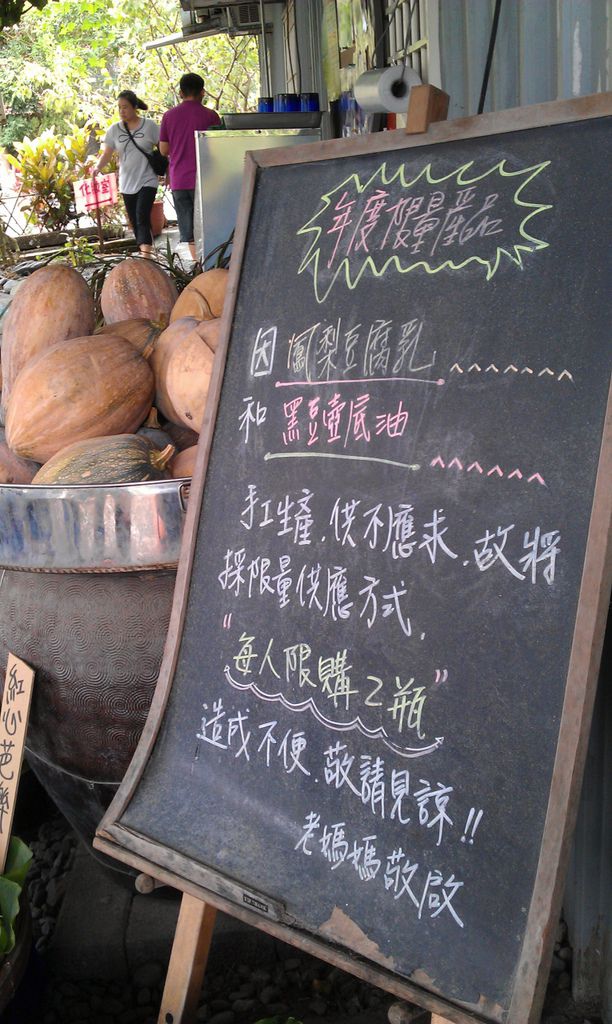 年度限量產品
因鳳梨豆腐乳
和黑豆壺底油
手工生產.供不應求.故將
採限量供應方式.
"每人限購2瓶"
造成不便.敬請見諒!!
老媽媽敬啟
紅心芭樂
化妝室